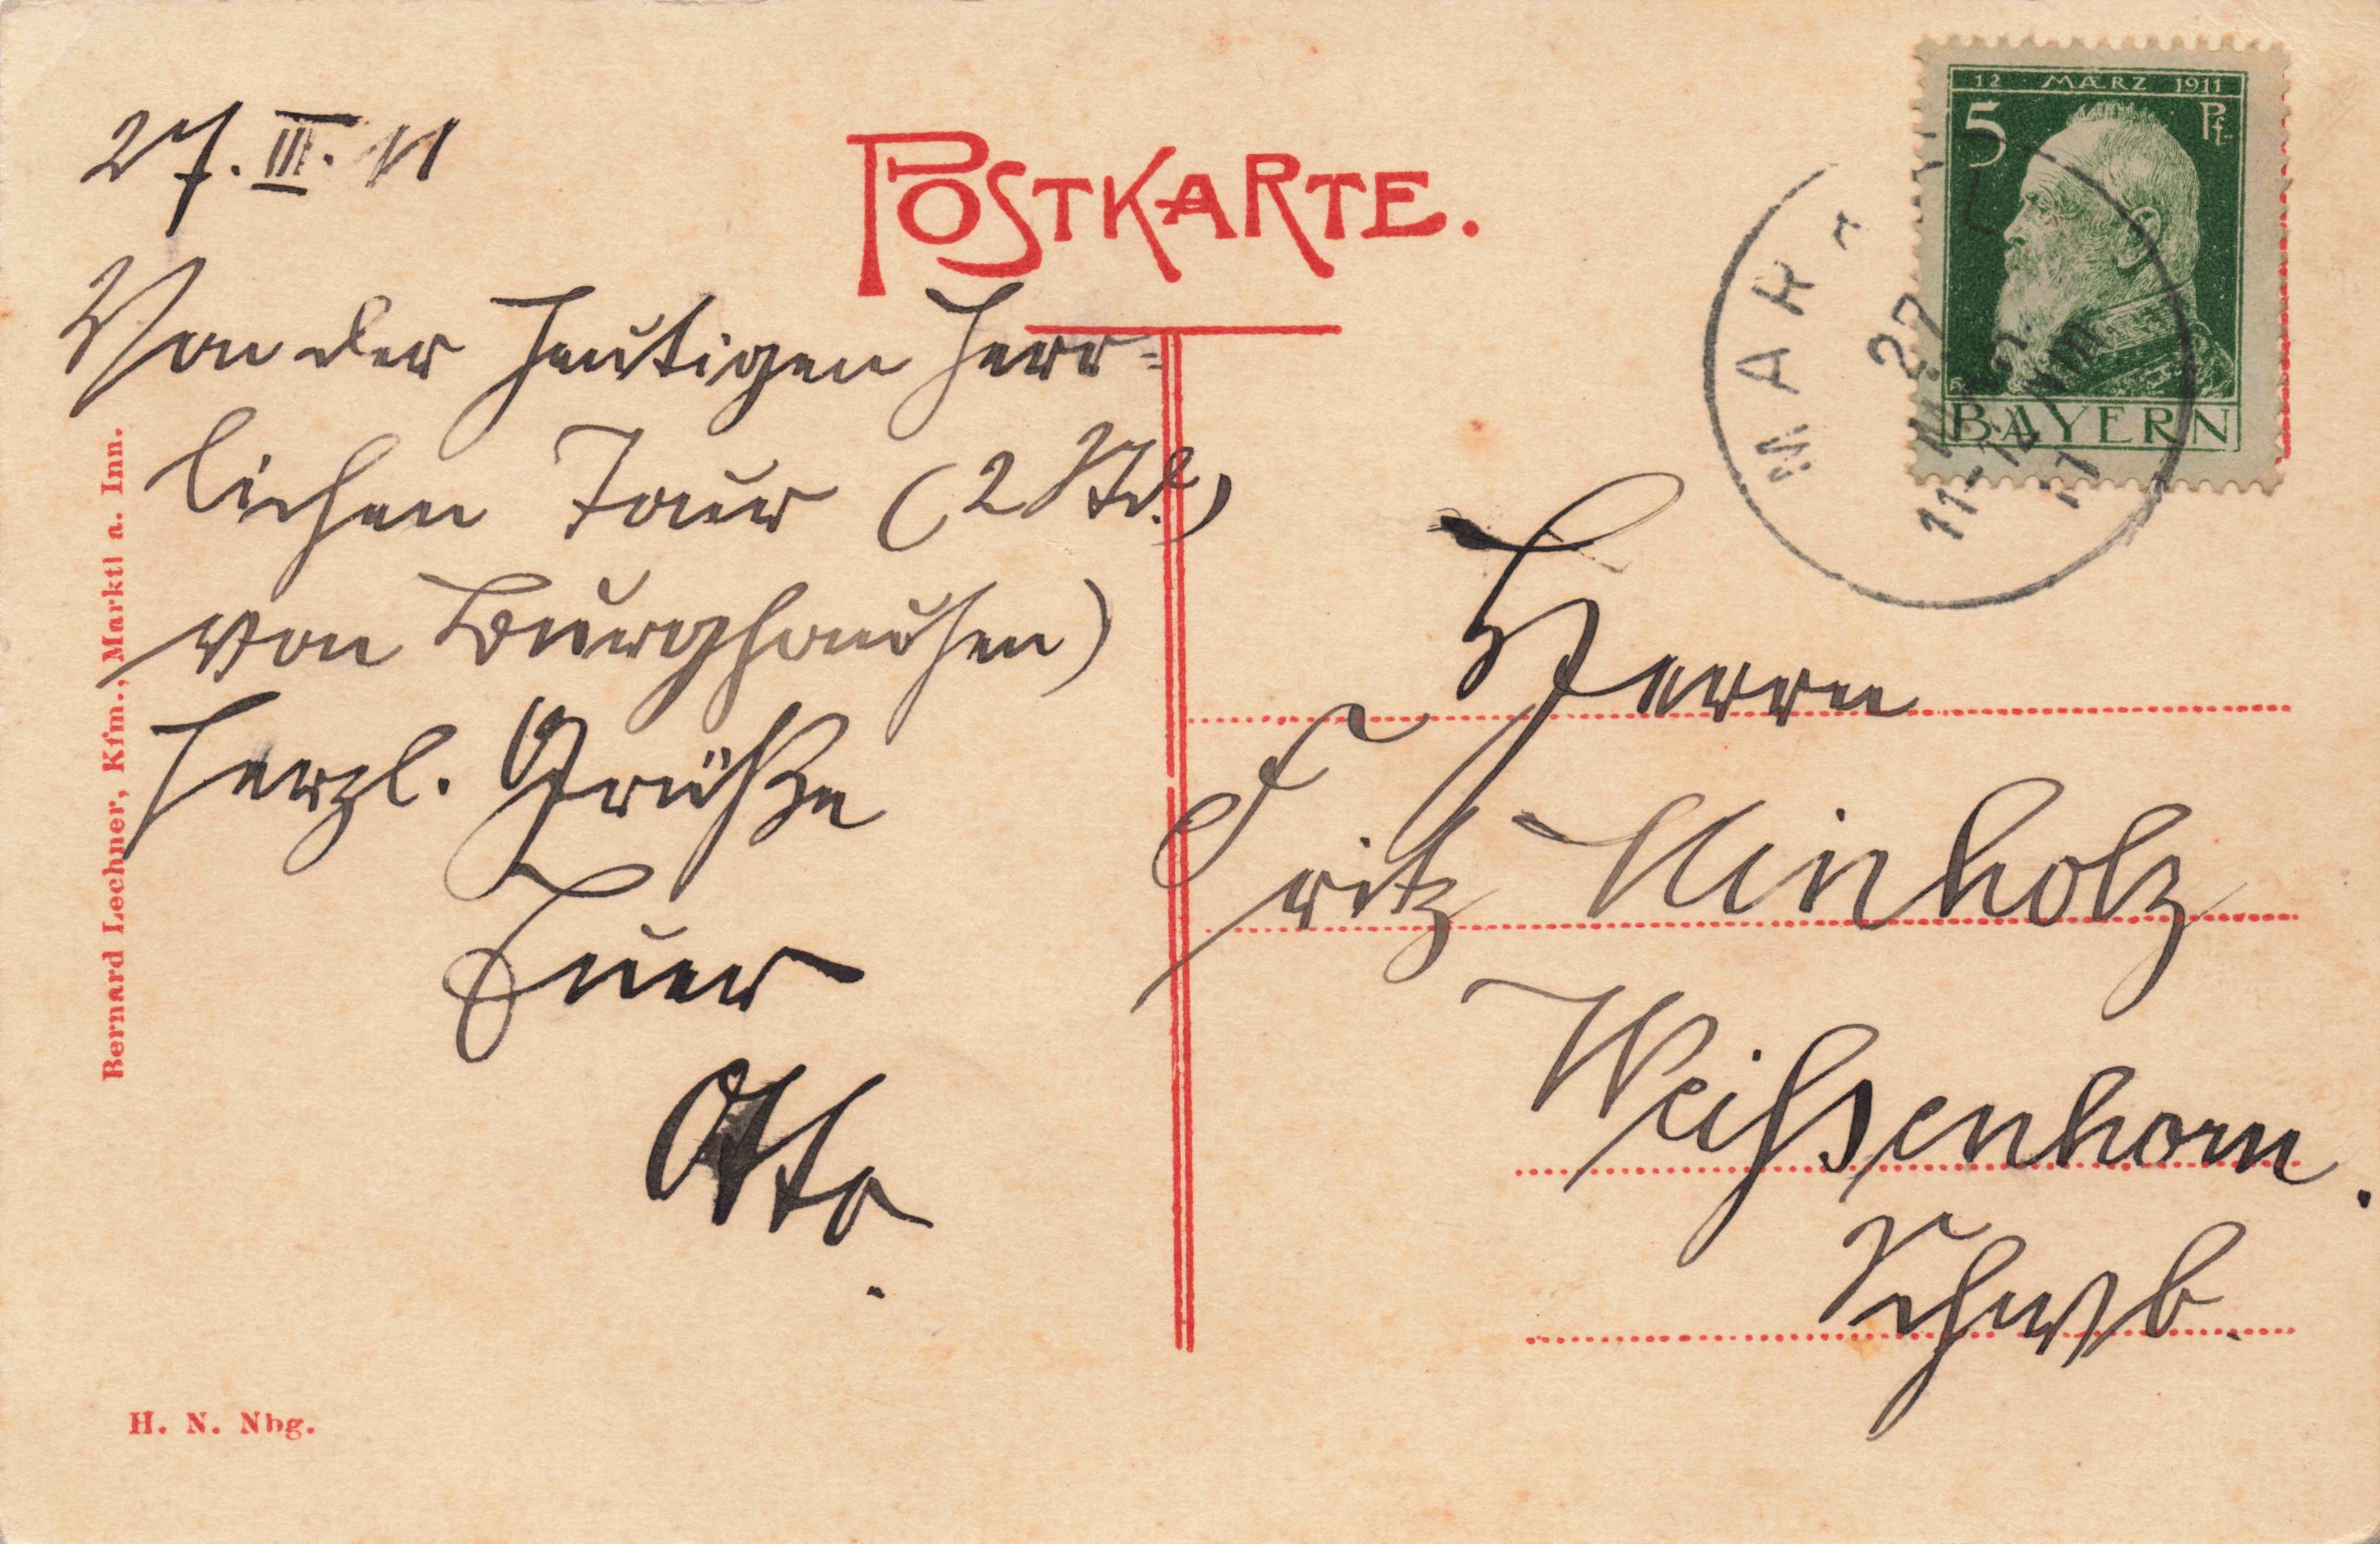 POSTKARTE.
27. III. 11
Von der heutigen herr=
lichen Tour (2 Std.)
von Burghausen)
herzl. Grüße
Euer
Otto.
Herrn
Fritz
Weißsenhorn.
Schwb.
12 MÆRZ 1911
5 Pf.
BAYERN
MARKTL
27
11-12 NM
11
Bernard Lechner, Kfm., Marktl a. Inn.
H. N. Nbg.